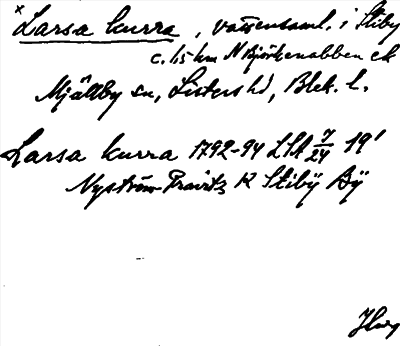 x Larsa kurra, vattensaml. i Stiby
c. 1,5 km N Björkenabben ek
Mjällby sn, Listers hd, Blek. l.
Larsa kurra 1792-94 LSA 7/24 19'
Nyström Pravitz K Stibÿ Bÿ